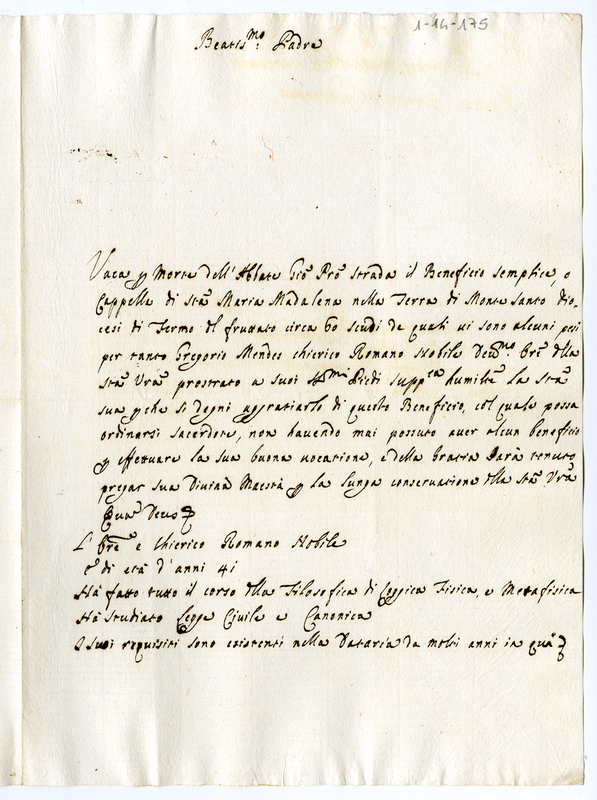 1-14-175
Beatis.mo Padre
Vaca p Morte dell'Abbate Gio: Pro Strada il Beneficio semplice, o
Cappella di Sta Maria Madalena nella Terra di Monte Santo Dio-
cesi di Fermo del fruttato circa 60 scudi de quali ui sono alcuni pesi
per tanto Gregorio Mendes chierico Romano Nobile Deu.mo Ore della
Sta Vra prostrato a suoi SS.mi Piedi supp.ca humilte la Sta
sua p che si degni aggratiarlo di questo Beneficio, col quale possa
ordinarsi sacerdote, non hauendo mai possuto auer alcun beneficio
p effettuare la sua buona uocatione, e della Gratia Darà tenuto
pregar sua Diuina Maestà p la lunga conseruatione della Sta Vra
Quam Deus
L'Ore è Chierico Romano Nobile
è di età d'anni 41
Ha fatto tutto il corso della Filosofica di Loggica Fisica, e Metafisica
Ha studiato Legge Ciuile e Canonica
I suoi requisiti sono esistenti nella Dataria da molti anni in quà